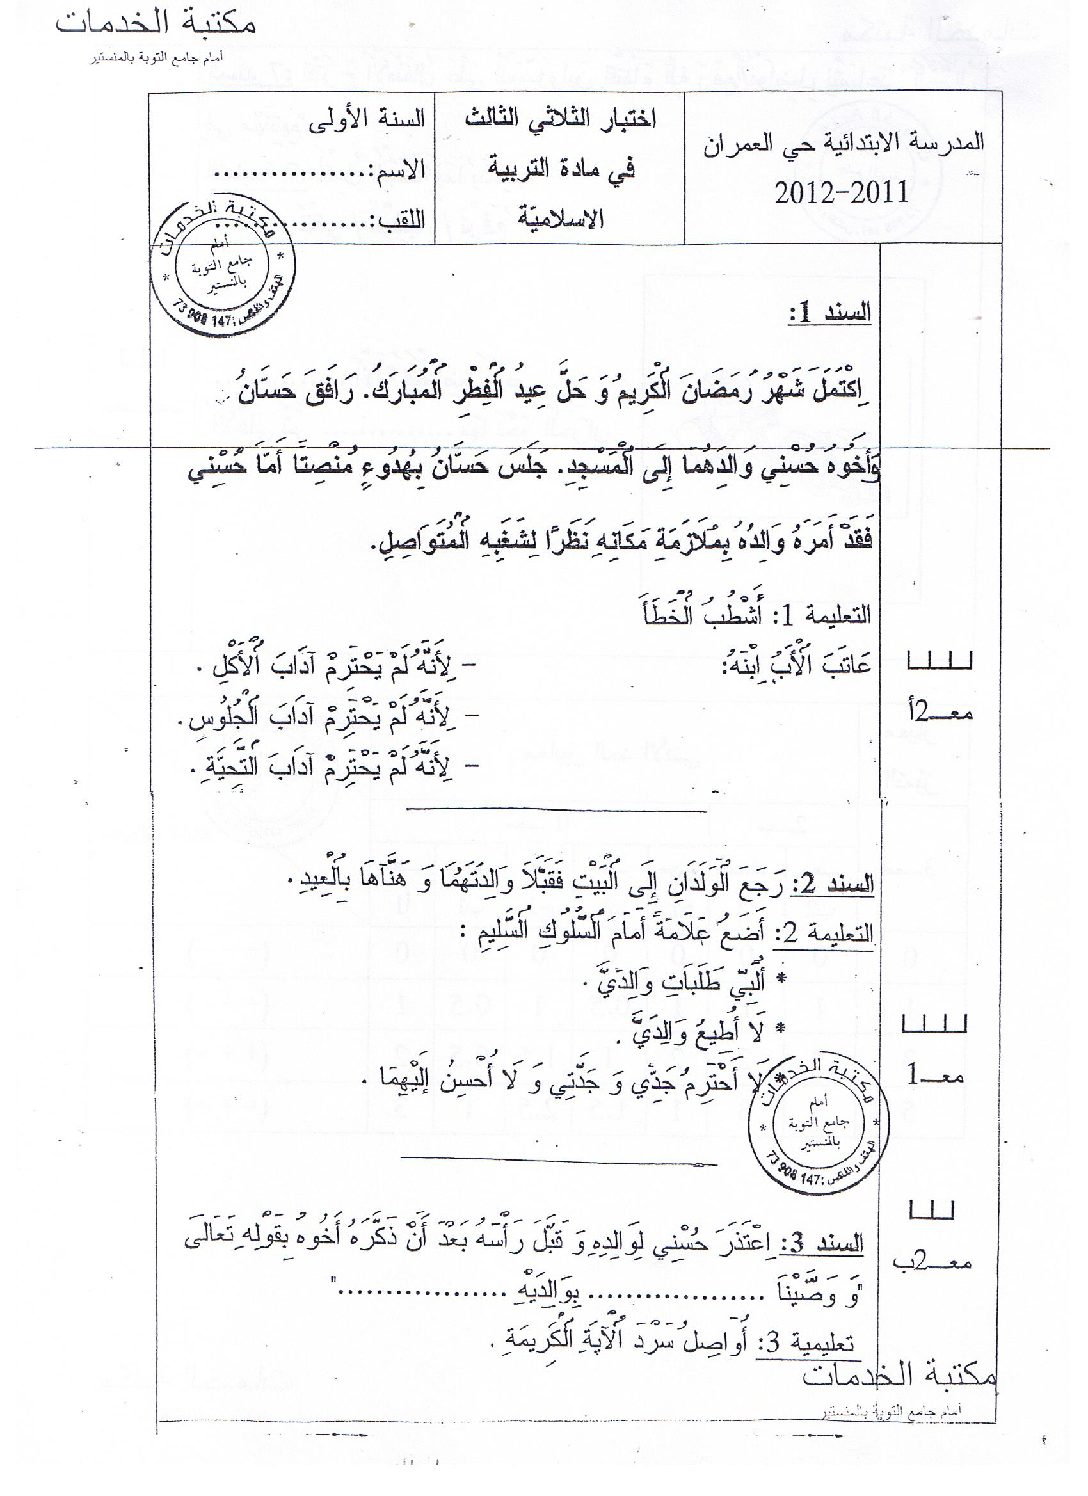 مكتبة الخدمات
أمام جامع التوبة بالمنستير
المدرسة الابتدائية حي العمران
2012-2011
اختبار الثلاثي الثالث
في مادة التربية
الاسلاميّة
السنة الأولى
الاسم:................
اللقب:................
مكتبة الخدمات
أمام
جامع التوبة
بالمنستير
الهاتف والفاكس: 147 908 73
السند 1:
اِكْتَمَلَ شَهْرُ رَمَضَانَ الْكَرِيمُ وَ حَلَّ عِيدُ الْفِطْرِ الْمُبَارَكُ. رَافَقَ حَسَّانُ
وَأَخُوهُ حُسْنِي وَالِدَهُمَا إِلَى الْمَسْجِدِ. جَلَسَ حَسَّانُ بِهُدُوءٍ مُنْصِتًا أَمَّا حُسْنِي
فَقَدْ أَمَرَهُ وَالِدُهُ بِمُلَازَمَةِ مَكَانِهِ نَظَرًا لِشَغَبِهِ الْمُتَوَاصِلِ.
التعليمة 1: أَشْطُبُ الْخَطَأَ
عَاتَبَ الْأَبُ اِبْنَهُ:
- لِأَنَّهُ لَمْ يَحْتَرِمْ آدَابَ الْأَكْلِ .
- لِأَنَّهُ لَمْ يَحْتَرِمْ آدَابَ الْجُلُوسِ.
- لِأَنَّهُ لَمْ يَحْتَرِمْ آدَابَ التَّحِيَّةِ .
معـ2أ
السند 2: رَجَعَ الْوَلَدَانِ إِلَى الْبَيْتِ فَقَبَّلَا وَالِدَتَهُمَا وَ هَنَّآهَا بِالْعِيدِ.
التعليمة 2: أَضَعُ عَلَامَةً أَمَامَ السُّلُوكِ السَّلِيمِ :
* أُلَبِّي طَلَبَاتِ وَالِدَيَّ .
* لَا أُطِيعُ وَالِدَيَّ .
* لَا أَحْتَرِمُ جَدِّي وَ جَدَّتِي وَ لَا أُحْسِنُ إِلَيْهِمَا .
معـ1
مكتبة الخدمات
أمام
جامع التوبة
بالمنستير
الهاتف والفاكس: 147 908 73
السند 3: اِعْتَذَرَ حُسْنِي لِوَالِدِهِ وَ قَبَّلَ رَأْسَهُ بَعْدَ أَنْ ذَكَّرَهُ أَخُوهُ بِقَوْلِهِ تَعَالَى
"وَ وَصَّيْنَا ................... بِوَالِدَيْهِ ..................."
تعليمية 3: أُوَاصِلُ سَرْدَ الْآيَةِ الْكَرِيمَةِ .
معـ2ب
مكتبة الخدمات
أمام جامع التوبة بالمنستير